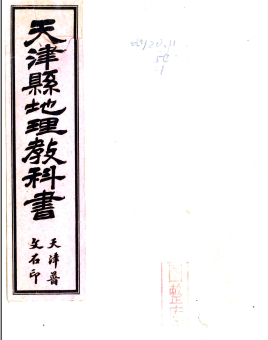 天津縣地理教科書
天津普
文石印